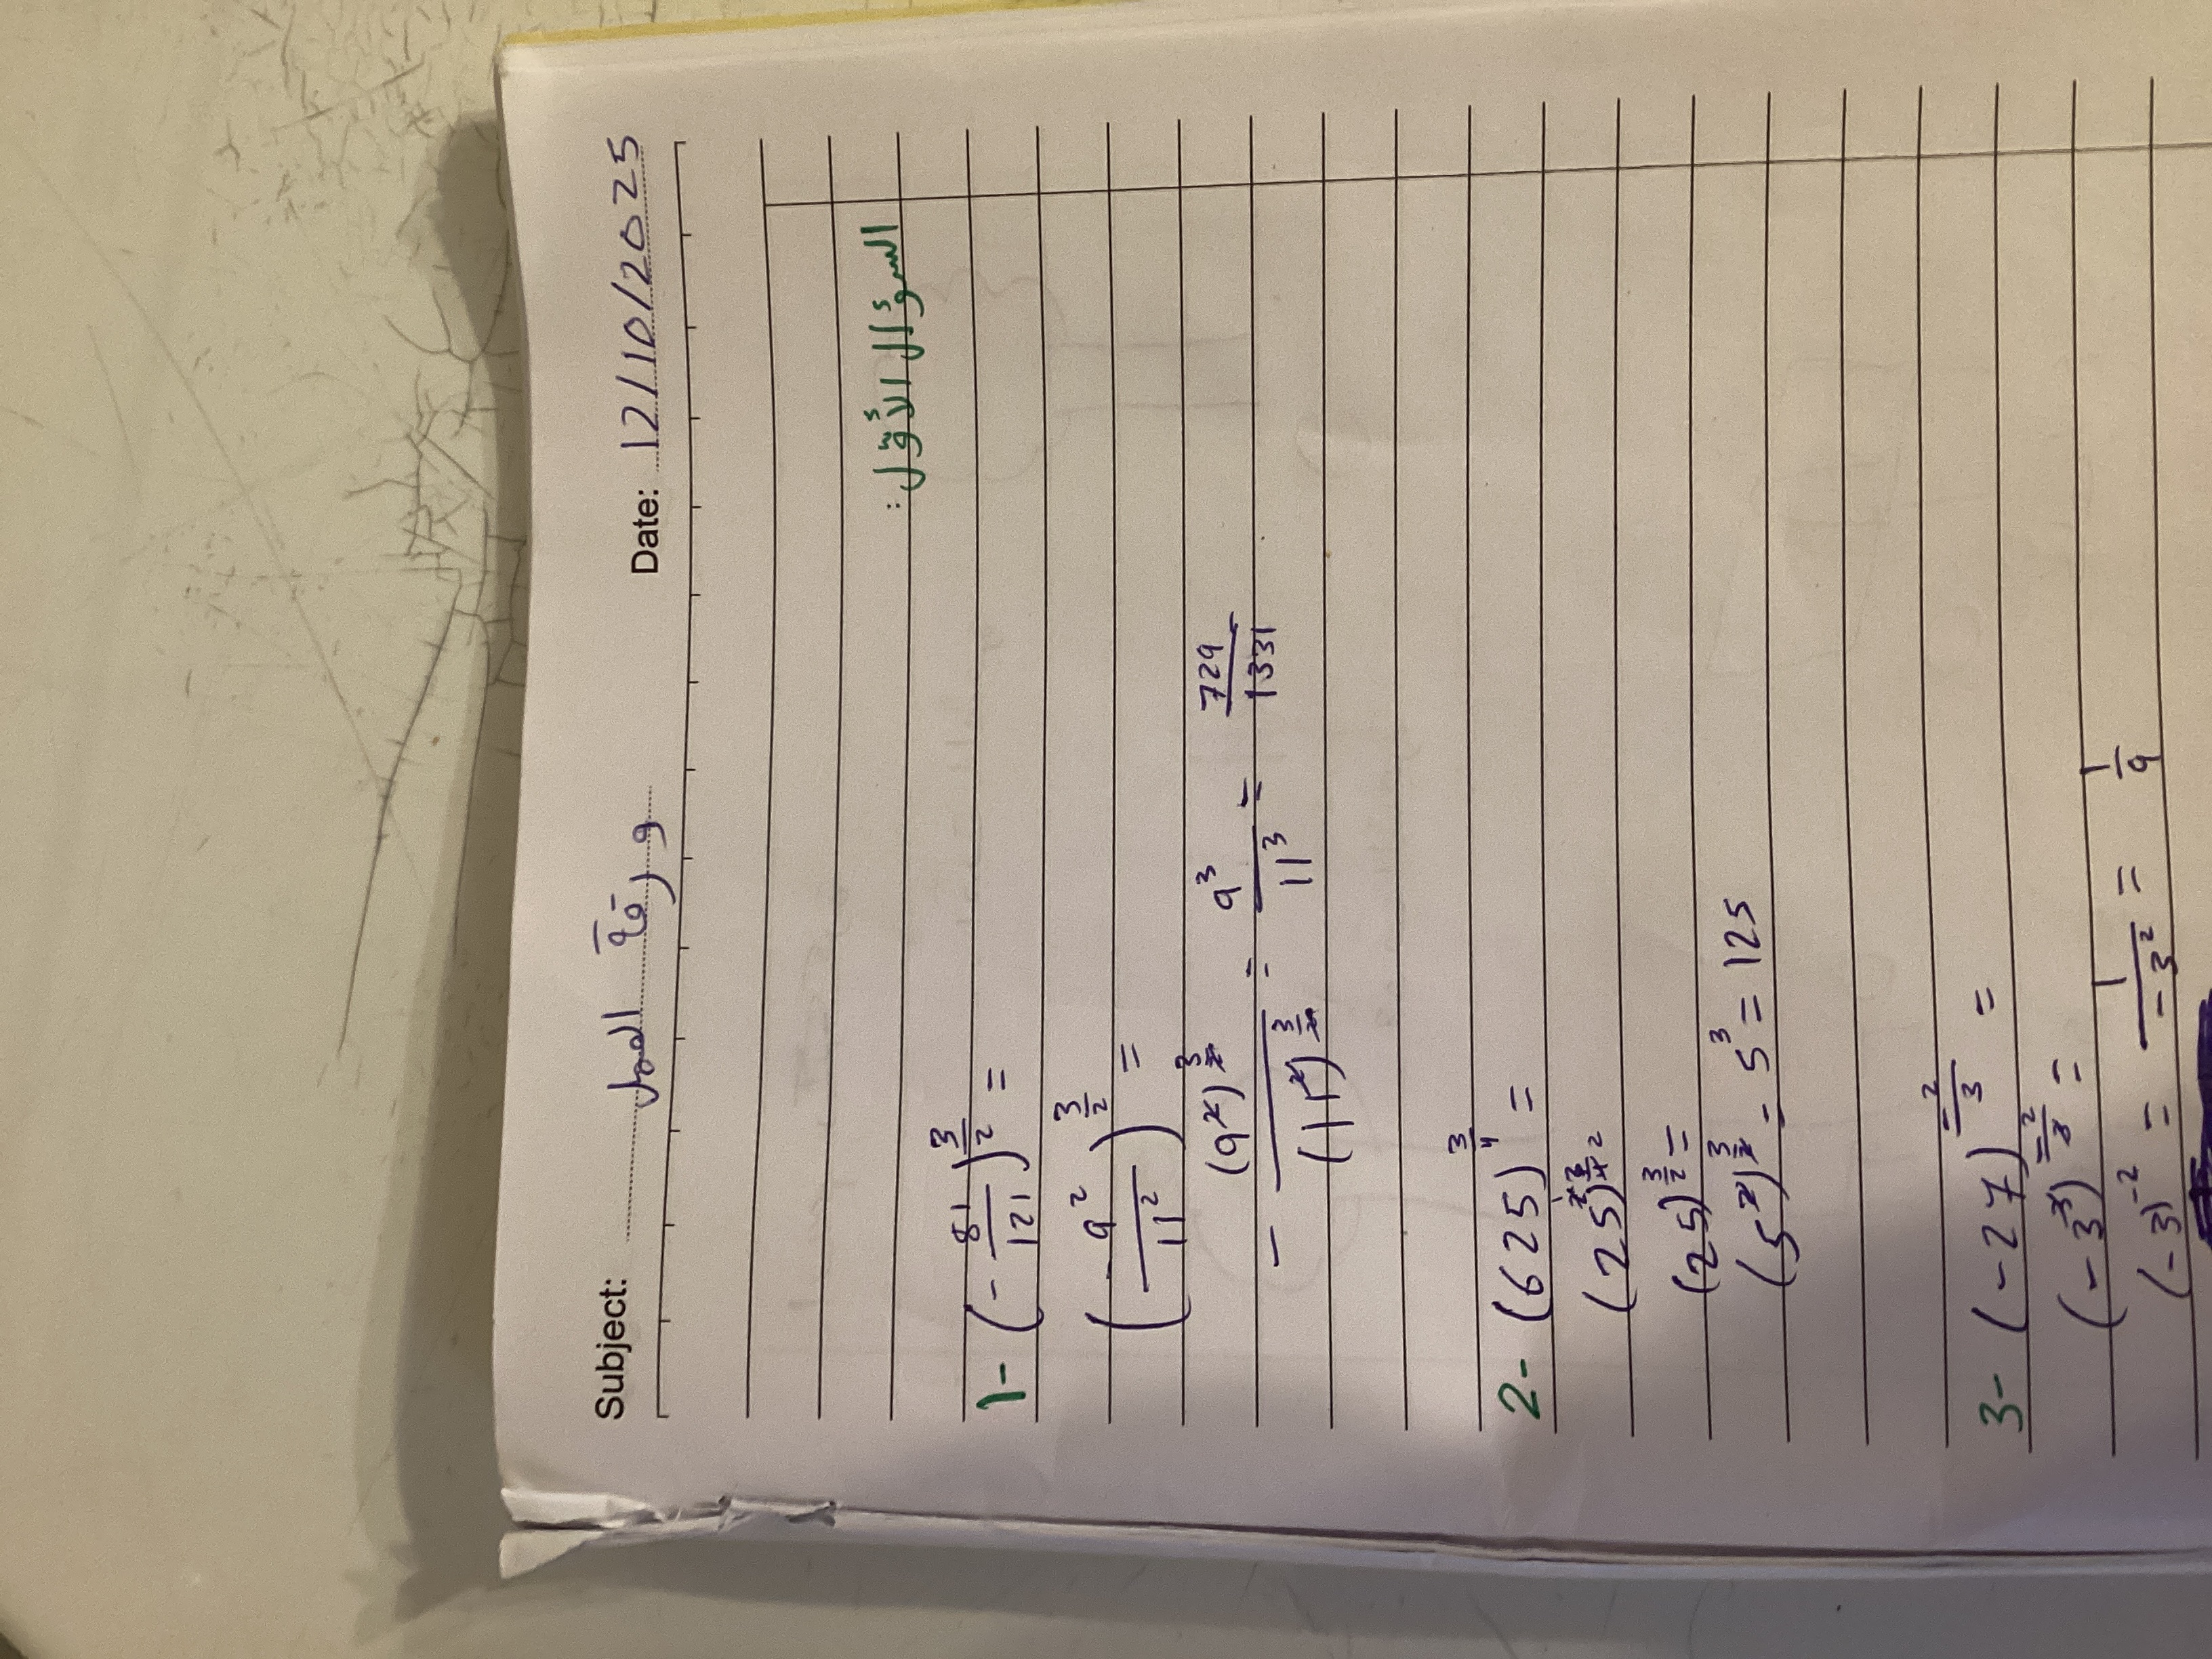 Subject: ورقة العمل Date: 12/10/2025
السؤال الأوّل:
1- (- 81/121)^3/2 =
(- 9^2/11^2)^3/2 =
- (9^2)^3/2 / (11^2)^3/2 = 9^3/11^3 = 729/1331
2- (625)^3/4 =
(25^2)^3/4 2
(25)^3/2 =
(5^2)^3/2 - 5^3 = 125
3- (-27)^-2/3 =
(-3^3)^-2/3 =
(-3)^-2 = 1/-3^2 = 1/9